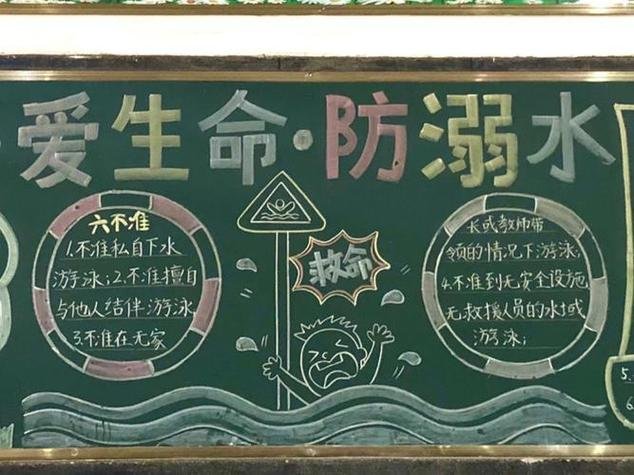 爱生命·防溺水
六不准
1.不准私自下水
游泳;2.不准擅自
与他人结伴游泳
3.不准在无家
救命
长或教师带
领的情况下游泳;
4.不准到无安全设施,
无救援人员的水域
游泳;
5.
6